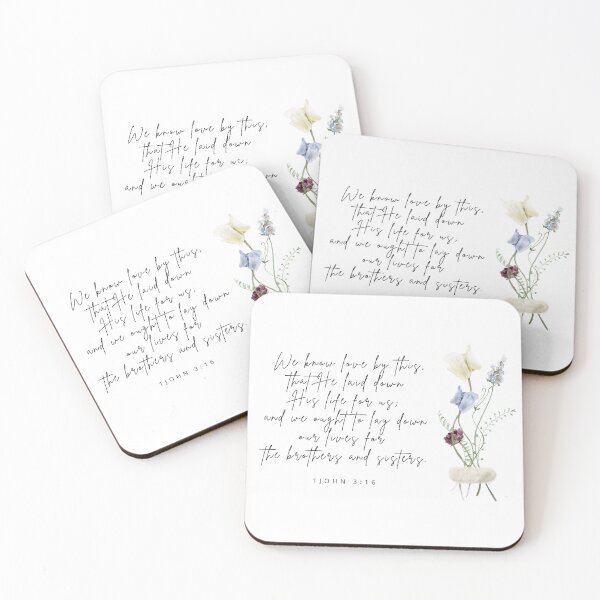 We know love by this,
that He laid down
His life for us;
and we ought to lay down
We know love by this,
that He laid down
His life for us;
and we ought to lay down
our lives for
the brothers and sisters.
We know love by this,
that He laid down
His life for us;
and we ought to lay down
our lives for
the brothers and sisters.
1JOHN 3:16
We know love by this,
that He laid down
His life for us;
and we ought to lay down
our lives for
the brothers and sisters.
1JOHN 3:16